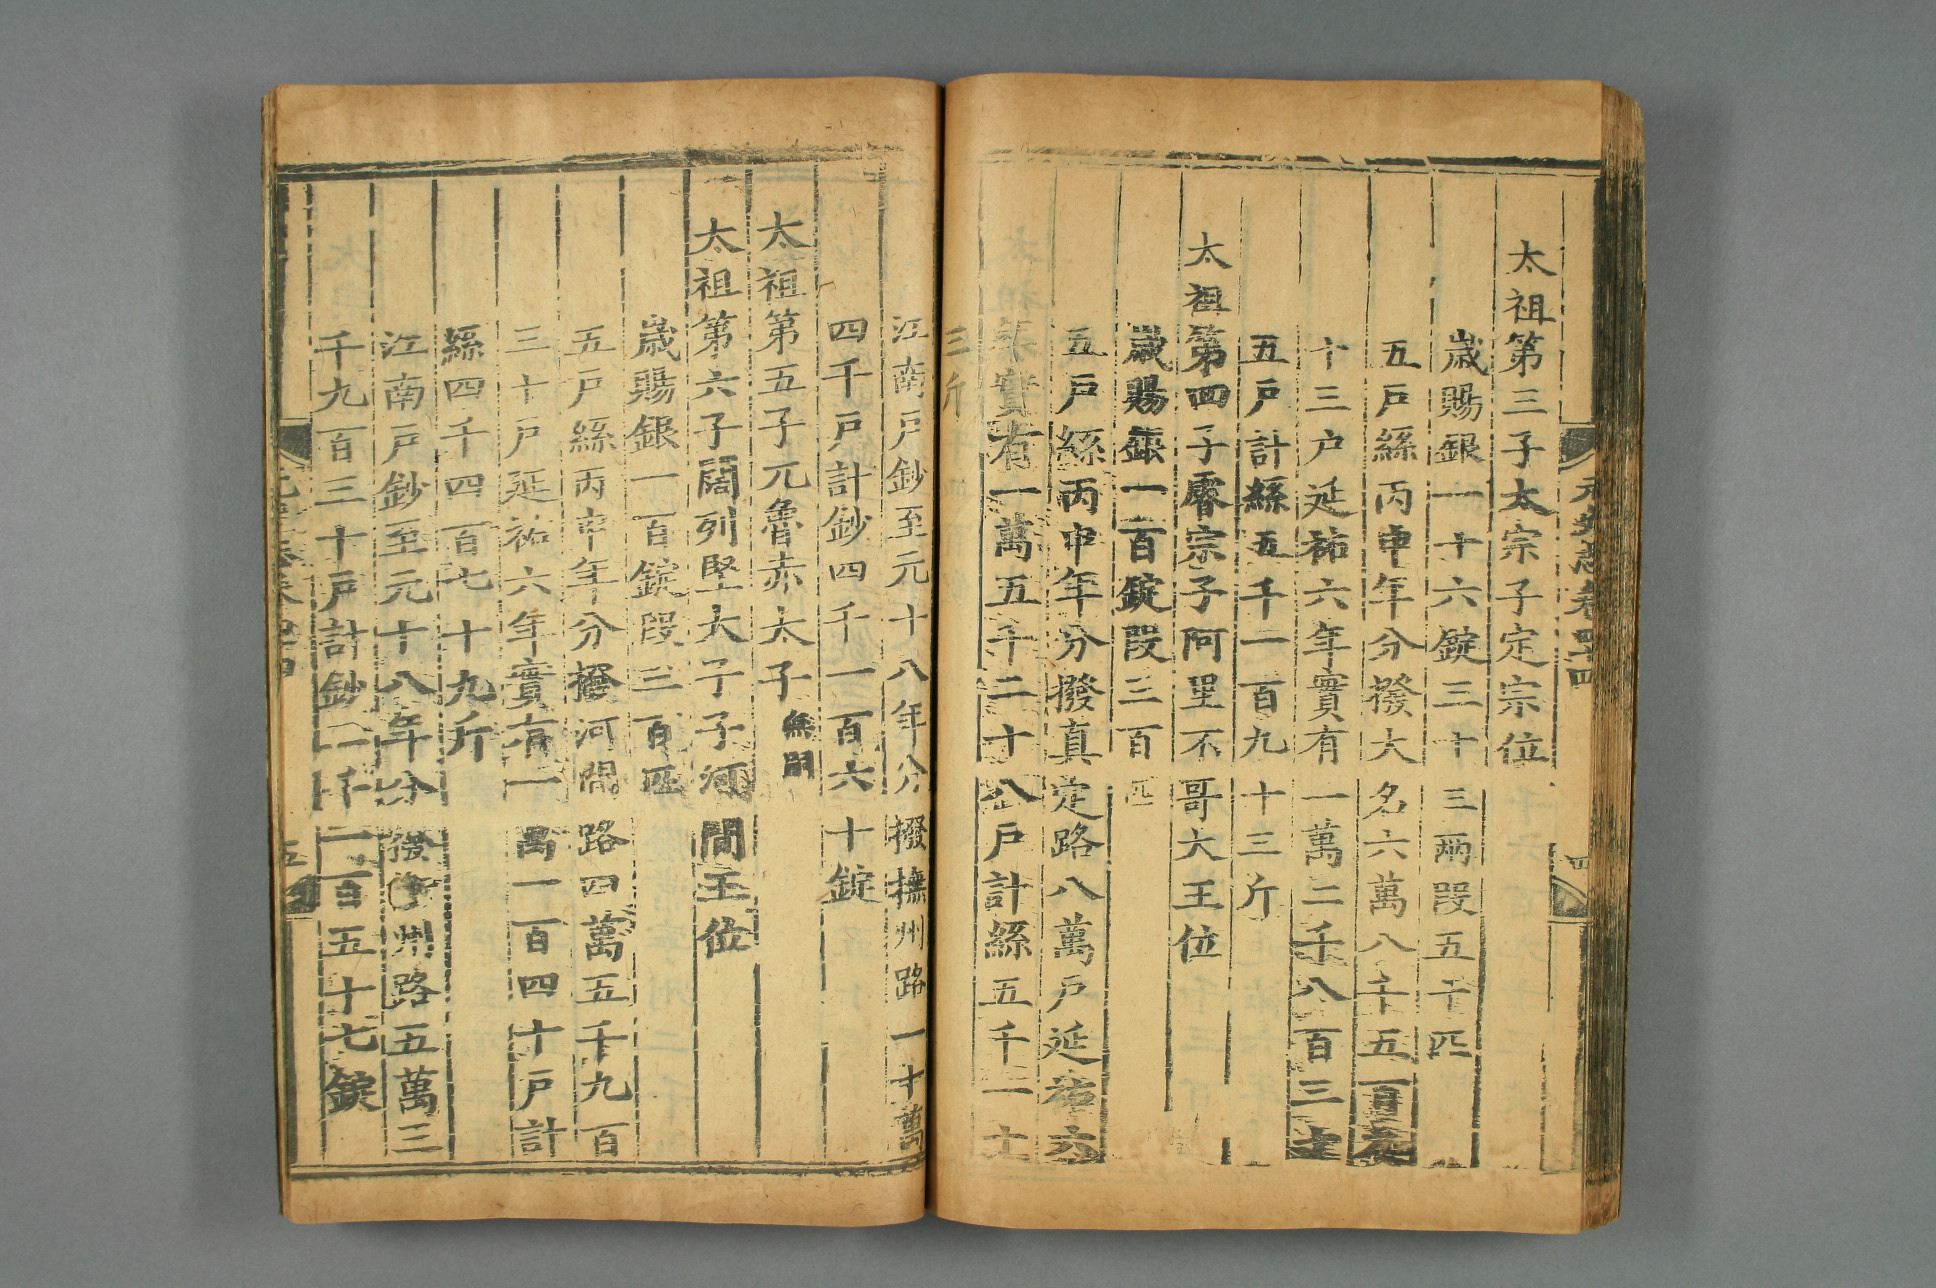 元史志卷四十四
四
太祖第三子太宗子定宗位
歲賜銀一十六錠三十三兩段五十匹
五戶絲丙申年分撥大名六萬八千五百九
十三戶延祐六年實有一萬二千八百三十
五戶計絲五千一百九十三斤
太祖第四子睿宗子阿里不哥大王位
歲賜銀一百錠段三百匹
五戶絲丙申年分撥真定路八萬戶延祐六
年實有一萬五千二十八戶計絲五千一十
三斤
江南戶鈔至元十八年分撥撫州路一十萬
四千戶計鈔四千一百六十錠
太祖第五子兀魯赤太子無嗣
太祖第六子闊列堅太子子河間王位
歲賜銀一百錠段三百匹
五戶絲丙申年分撥河間路四萬五千九百
三十戶延祐六年實有一萬一百四十戶計
絲四千四百七十九斤
江南戶鈔至元十八年分撥衡州路五萬三
千九百三十戶計鈔二千一百五十七錠
元史志卷四十四
五